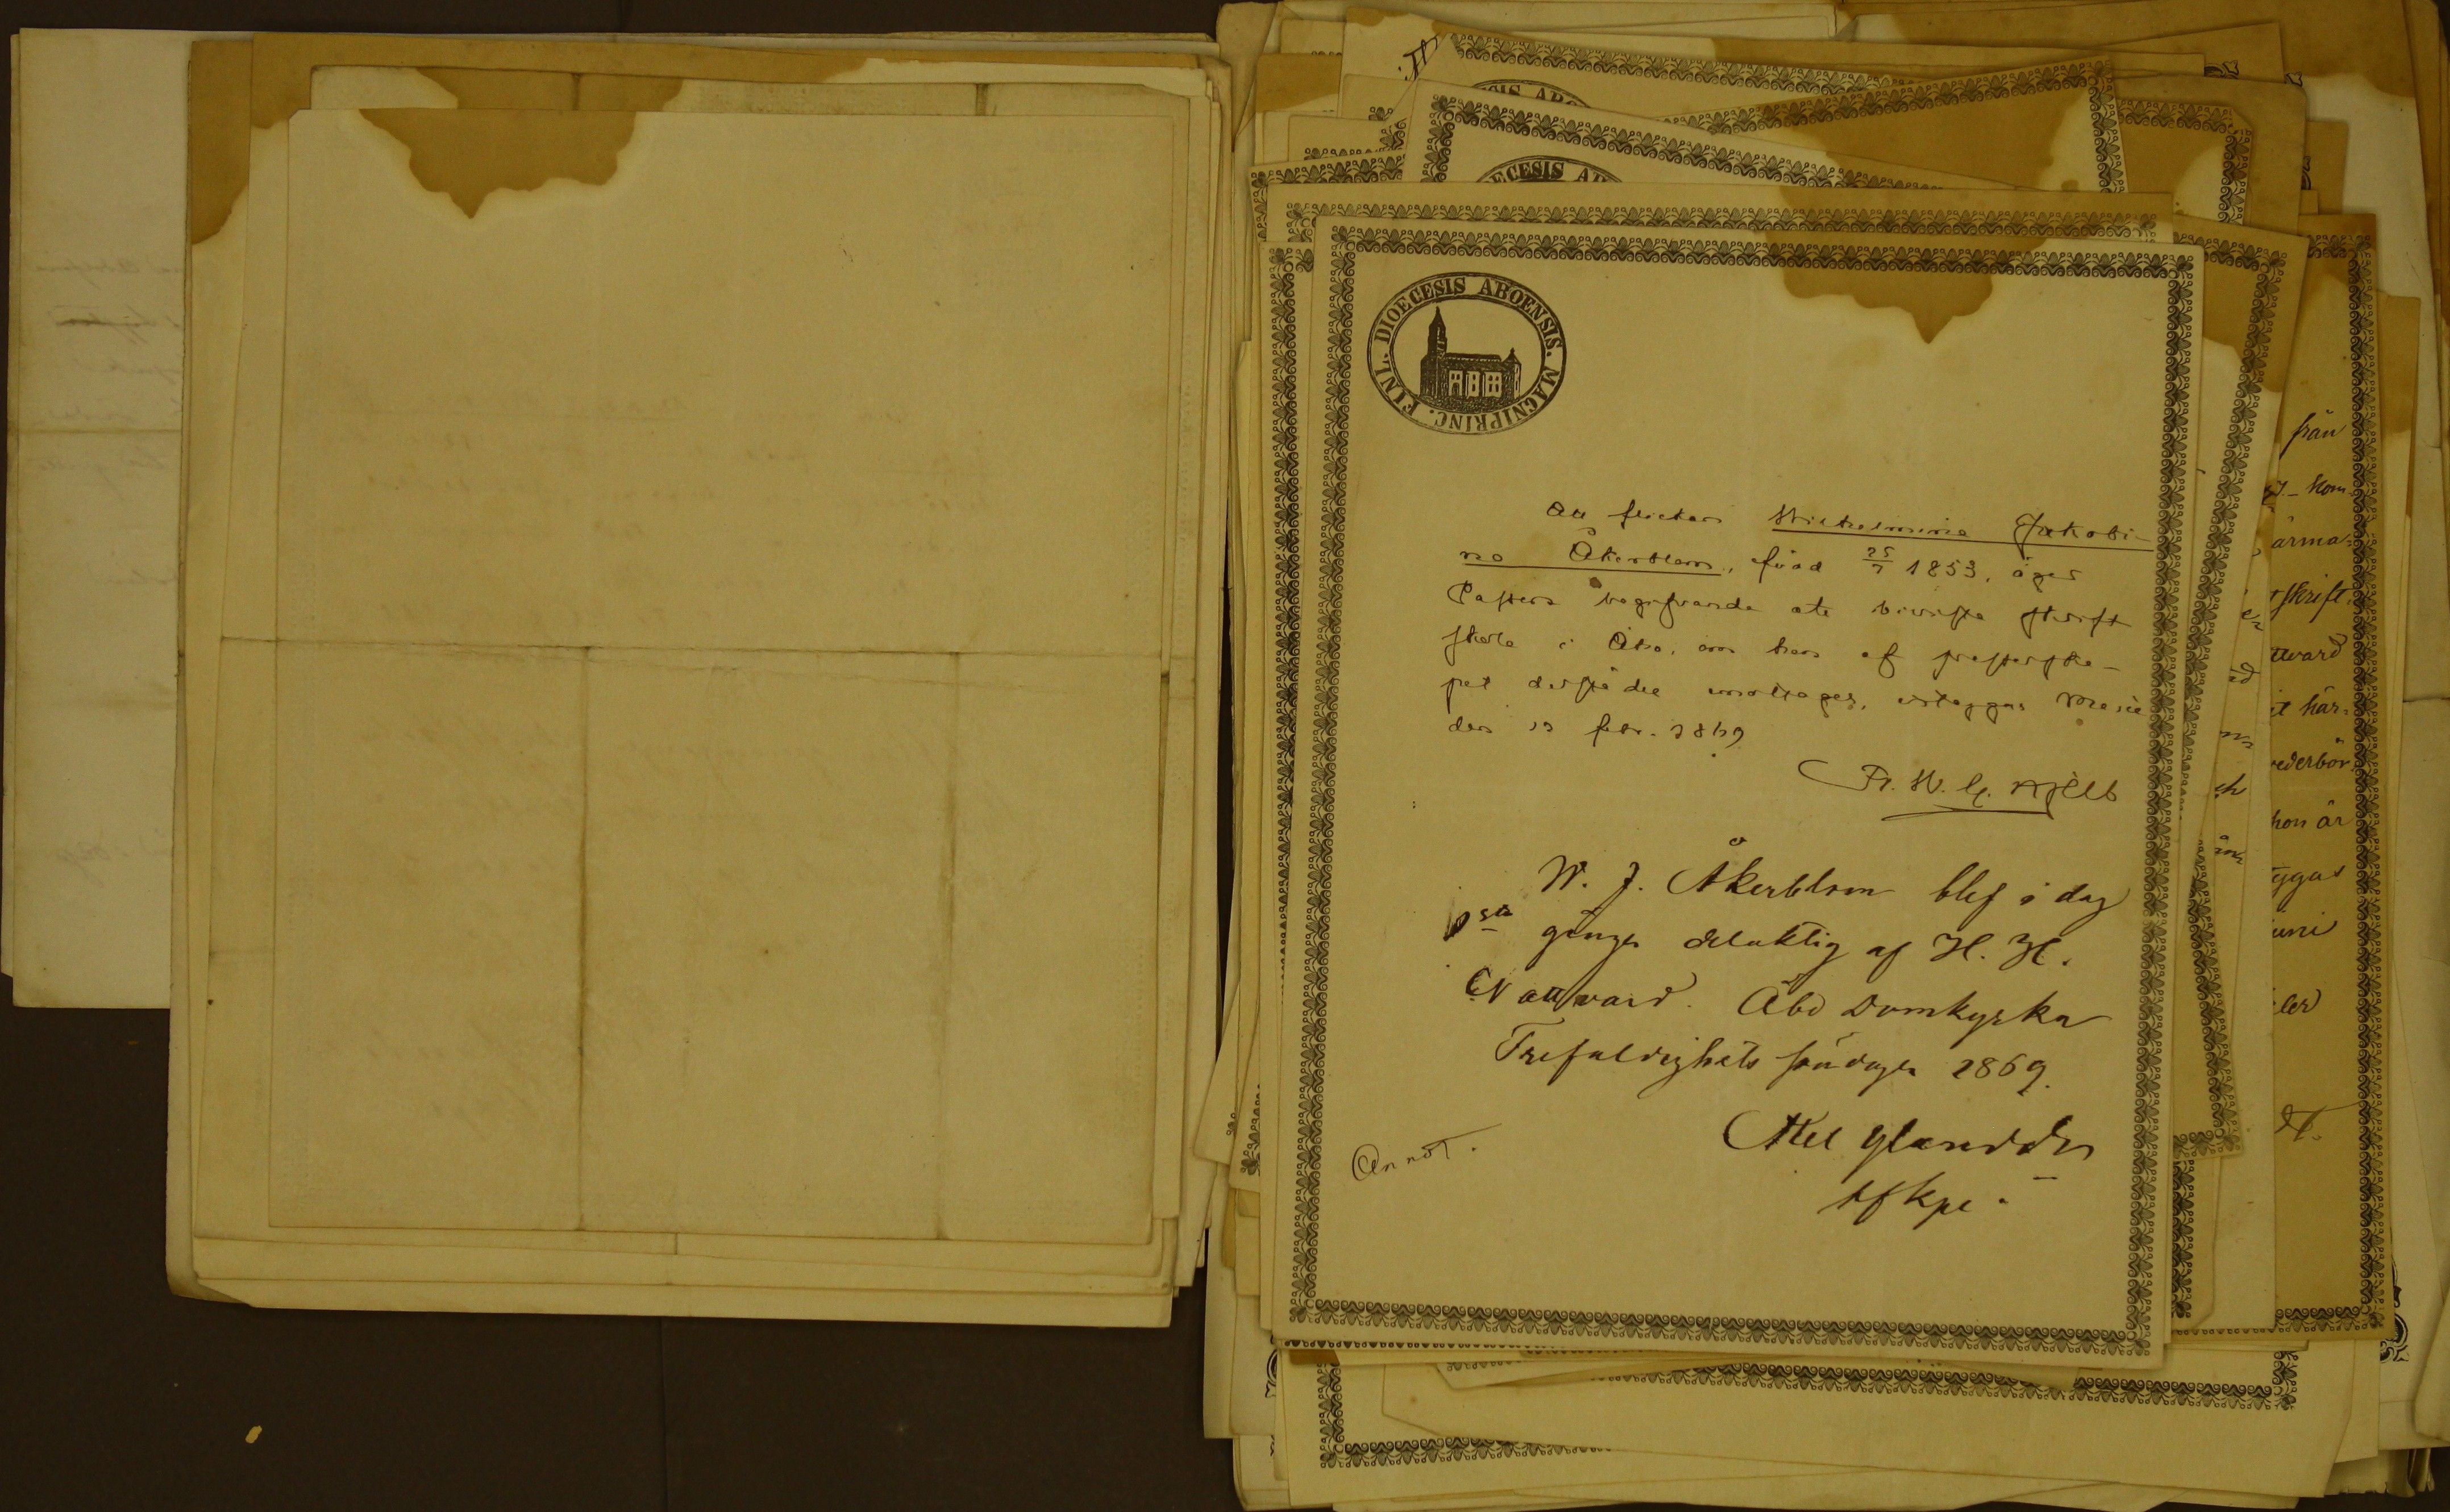 FINL. DIOECESIS ABOENSIS. MAGNIPRINC.
Att flickan Wilhelmina Jakobi-
na Åkerblom, född 25/7 1853, äger
Pastors begifvande att bivista skrift
skola i Åbo, om hon af presterska-
pet derstädes emottages, intygas Masku
den 12 febr. 1869
Fr. W. G.
W. J. Åkerblom blef i dag
1sta gången delaktig af H. H.
Nattvard. Åbo Domkyrka
Trefaldighets söndagen 1869.
Axel
Annot.
från
kom-
ärma=
tskrift
ttvard
it här=
vederbör
hon är
tygas
juni